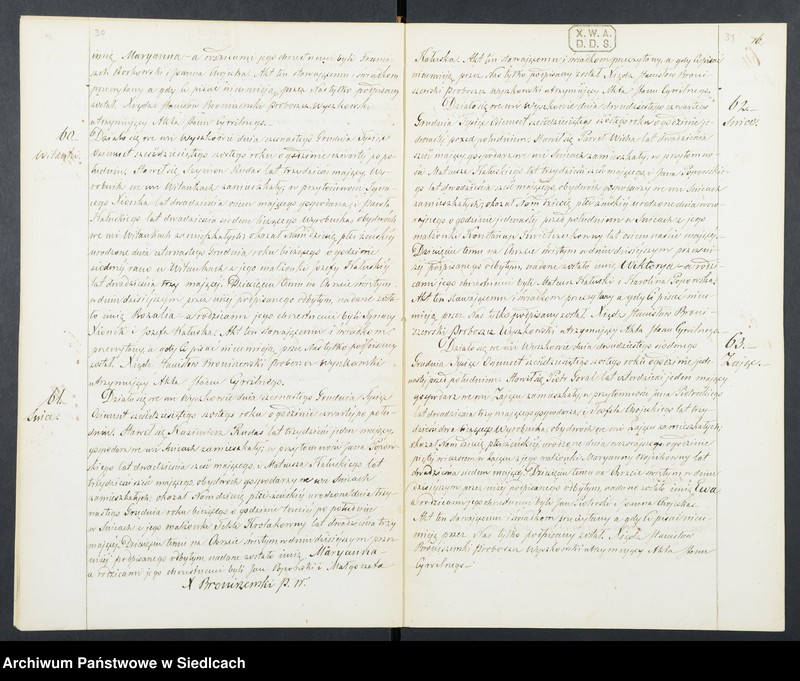 30
imię Maryanna a rodzicami jego chrzestnemi byli
Borkowski i Joanna Akt ten stawającemu i świadkom
przeczytany a gdy ci pisać nieumieją, przez Nas tylko podpisany
został. Xiądz Stanisław Broniszewski Proboszcz Wyszkowski
utrzymujący Akta Stanu Cywilnego.
60.
Witanki
Działo się we wsi Wyszkowie dnia Grudnia Tysiąc
Ośmset sześćdziesiątego szóstego roku o godzinie czwartej po po-
łudniu. Stawił się Szymon Rudas lat trzydzieści mający Wy-
robnik we wsi Witankach zamieszkały; w przytomności
lat dwadzieścia ośm mającego gospodarza i
Kaluskiego lat dwadzieścia siedm liczącego Wyrobnika, obydwóch
we wsi Witankach zamieszkałych; okazał Nam dziecię płci żeńskiéj
urodzone dnia Grudnia roku bieżącego o godzinie
siódméj rano w Witankach z jego małżonki Józefy Kaluskiéj
lat dwadzieścia trzy mającéj. Dziecięciu temu na Chrzcie świętym
w dniu dzisiejszym przez niżéj podpisanego odbytym, nadane zosta-
ło imię Rozalia a rodzicami jego chrzestnemi byli Ignacy
i Józefa Kaluska. Akt ten stawającemu i świadkom
przeczytany, a gdy ci pisać nieumieją, przez Nas tylko podpisany
został. Xiądz Stanisław Broniszewski Proboszcz Wyszkowski
utrzymujący Akta Stanu Cywilnego.
61.
Śnice
Działo się we wsi Wyszkowie dnia Grudnia Tysiąc
Ośmset sześćdziesiątego szóstego roku o godzinie czwartéj po połu-
dniu. Stawił się Kazimierz Rudas lat trzydzieści jeden mający,
gospodarz we wsi Śnicach zamieszkały; w przytomności Jana Popow-
skiego lat dwadzieścia sześć mającego, i Mateusza Kaluskiego lat
trzydzieści sześć mającego, obydwóch gospodarzy we wsi Śnicach
zamieszkałych; okazał Nam dziecię płci żeńskiéj urodzone dnia trzy-
nastego Grudnia roku bieżącego o godzinie trzeciéj po południu
w Śnicach z jego małżonki Tekli lat dwadzieścia trzy
mającéj. Dziecięciu temu na Chrzcie świętym w dniu dzisiejszym przez
niżéj podpisanego odbytym nadane zostało imię Maryanna
a rodzicami jego chrzestnemi byli Jan Popowski i Małgorzata
X Broniszewski P. W.
X. W. A.
D. D. S.
31
Kaluska. Akt ten stawającemu i świadkom przeczytany, a gdy ci pisać
nieumieją, przez Nas tylko podpisany został. Xiądz Stanisław Broni-
szewski Proboszcz Wyszkowski utrzymujący Akta Stanu Cywilnego.
62.
Śnice
Działo się we wsi Wyszkowie dnia dwudziestego czwartego
Grudnia Tysiąc Ośmset sześćdziesiątego szóstego roku o godzinie je-
denastéj przed południem. Stawił się Paweł lat dwadzieścia
sześć mający, gospodarz we wsi Śnicach zamieszkały, w przytomno-
ści Mateusza Kaluskiego lat trzydzieści sześć mającego, i Jana Popowskie-
go lat dwadzieścia sześć mającego, obydwóch gospodarzy we wsi Śnicach
zamieszkałych; okazał Nam dziecię płci żeńskiéj urodzone dnia wczo-
rajszego o godzinie jedenastéj przed południem w Śnicach z jego
małżonki lat ośmnaście mającéj.
Dziecięciu temu na Chrzcie świętym w dniu dzisiejszym przez ni-
żéj podpisanego odbytym, nadane zostało imię Wiktorya a rodzi-
cami jego chrzestnemi byli Mateusz Kaluski i Karolina Popowska.
Akt ten stawającemu i świadkom przeczytany a gdy ci pisać nieu-
mieją, przez Nas tylko podpisany został. Xiądz Stanisław Broni-
szewski Proboszcz Wyszkowski utrzymujący Akta Stanu Cywilnego.
63.
Zając
Działo się we wsi Wyszkowie dnia dwudziestego siódmego
Grudnia Tysiąc Ośmset sześćdziesiątego szóstego roku o godzinie jede-
nastéj przed południem. Stawił się Piotr Góral lat czterdzieści jeden mający
gospodarz we wsi Zającu zamieszkały, w przytomności Jana
lat dwadzieścia trzy mającego gospodarza, i Józefa Chojeckiego lat trzy-
dzieści dwa liczącego Wyrobnika, obydwóch we wsi Zającu zamieszkałych;
okazał Nam dziecię płci żeńskiéj, urodzone dnia wczorajszego o godzinie
piątéj wieczorem w Zającu z jego małżonki Maryanny lat
dwadzieścia siedm mającéj. Dziecięciu temu na Chrzcie świętym w dniu
dzisiejszym przez niżéj podpisanego odbytym, nadane zostało imię Ewa
a rodzicami jego chrzestnemi byli Jan i
Akt ten stawającemu i świadkom przeczytany a gdy ci pisać nieu-
mieją, przez Nas tylko podpisany został. Xiądz Stanisław
Broniszewski Proboszcz Wyszkowski utrzymujący Akta Stanu
Cywilnego.
Archiwum Państwowe w Siedlcach